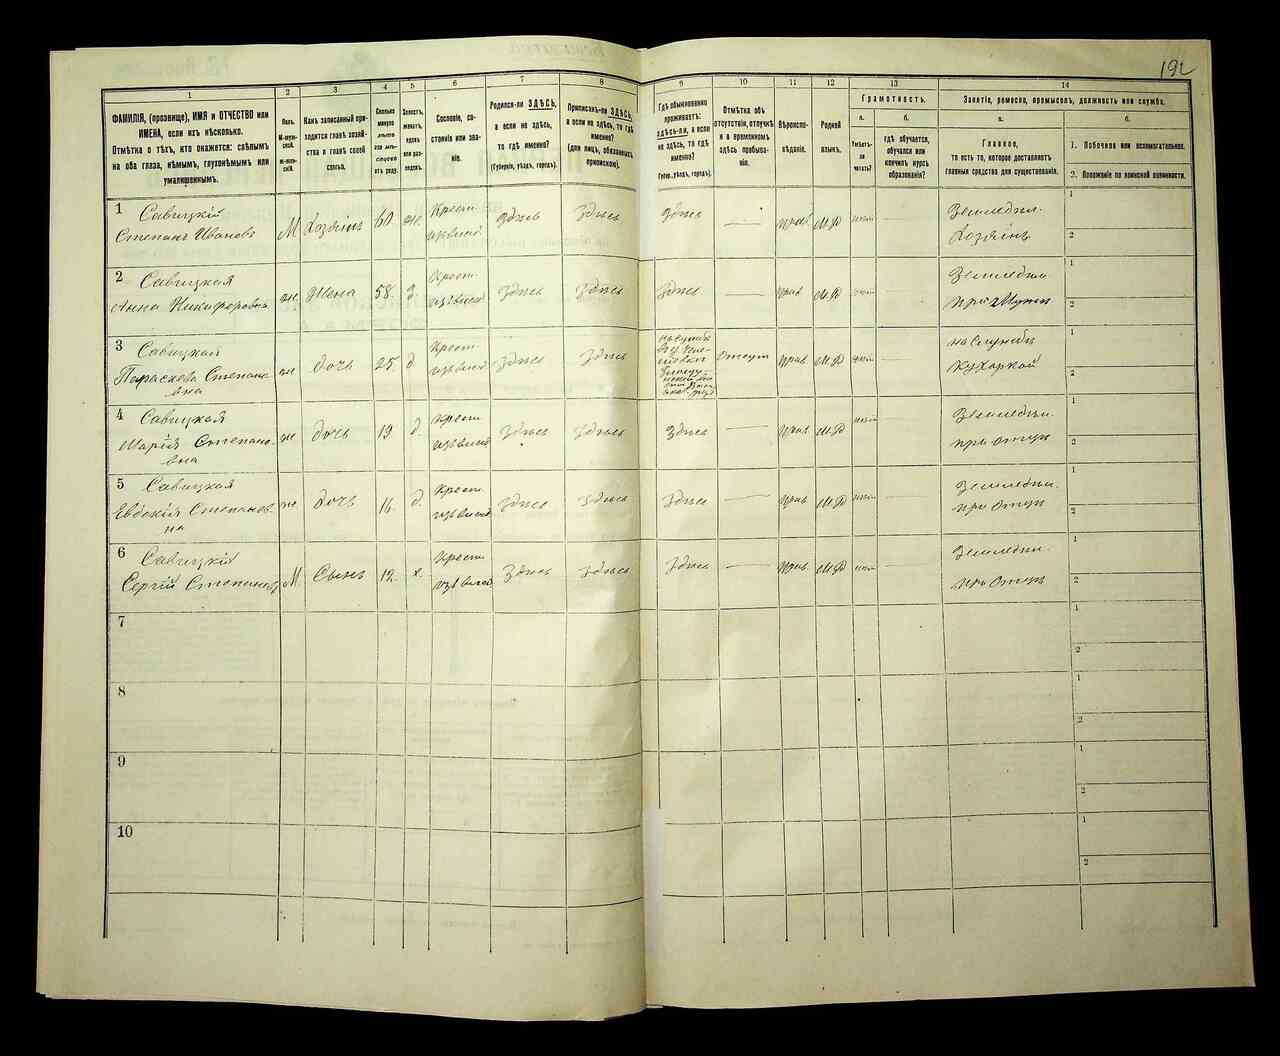 192
1
2
3
4
5
6
7
8
9
10
11
12
13
14
ФАМИЛІЯ, (прозвище), ИМЯ и ОТЧЕСТВО или
ИМЕНА, если ихъ нѣсколько.
Отмѣтка о тѣхъ, кто окажется: слѣпымъ
на оба глаза, нѣмымъ, глухонѣмымъ или
умалишеннымъ.
Полъ.
М-муж-
ской.
Ж-жен-
скій.
Какъ записанный при-
ходится главѣ хозяй-
ства и главѣ своей
семьи.
Сколько
минуло
лѣтъ
или мѣ-
сяцевъ
отъ роду.
Холостъ,
женатъ,
вдовъ
или раз-
веденъ.
Сословіе, со-
стояніе или зва-
ніе.
Родился-ли ЗДѢСЬ,
а если не здѣсь,
то гдѣ именно?
(Губернія, уѣздъ, городъ).
Приписанъ-ли ЗДѢСЬ,
а если не здѣсь, то гдѣ
именно?
(для лицъ, обязанныхъ
припискою).
Гдѣ обыкновенно
проживаетъ:
здѣсь-ли, а если
не здѣсь, то гдѣ
именно?
(Губер., уѣздъ, городъ).
Отмѣтка объ
отсутствіи, отлучкѣ
и о временномъ
здѣсь пребыва-
ніи.
Вѣроиспо-
вѣданіе.
Родной
языкъ.
Грамотность.
а.
б.
Умѣетъ-
ли
читать?
гдѣ обучается,
обучался или
кончилъ курсъ
образованія?
Занятіе, ремесло, промыселъ, должность или служба.
а.
б.
Главное,
то есть то, которое доставляетъ
главныя средства для существованія.
1. Побочное или вспомогательное.
2. Положеніе по воинской повинности.
1 Савицкій
Степанъ Ивановъ М Хозяинъ 60 ж. Крест. Здѣсь Здѣсь Здѣсь — прав М.Р — Земледѣл. 1
Хозяинъ 2
2 Савицкая
Анна Никифоровна ж Жена 58 Крест. Здѣсь Здѣсь Здѣсь — прав М.Р — Земледѣл. 1
при Мужѣ 2
3 Савицкая
Параскева Степано
вна ж дочь 25 д. Крест. Здѣсь Здѣсь Отсут прав М.Р — на службѣ 1
Кухаркой 2
4 Савицкая
Марія Степано
вна ж дочь 19 д. Крест. Здѣсь Здѣсь Здѣсь — прав М.Р — Земледѣл. 1
при Отцѣ 2
5 Савицкая
Евдокія Степанов
на ж дочь 16 д. Крест. Здѣсь Здѣсь Здѣсь — прав М.Р — Земледѣл. 1
при Отцѣ 2
6 Савицкій
Сергій Степановъ М Сынъ 12 х. Крест. Здѣсь Здѣсь Здѣсь — прав М.Р Земледѣл. 1
при Отцѣ 2
7 1
2
8 1
2
9 1
2
10 1
2